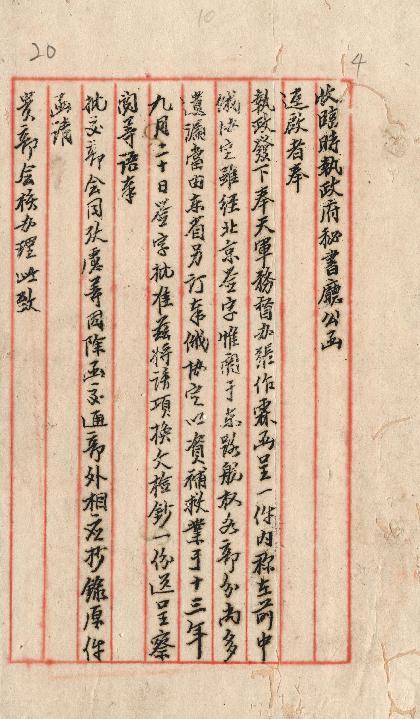 收臨時執政府秘書廳公函
逕啟者奉
執政發下奉天軍務督辦張作霖函呈一件內称在前中
俄協定雖經北京簽字惟關于東路航权各部分尚多
遺漏當由东省另订奉俄協定以資補救業于十三年
九月二十日簽字批准茲将該項換文檢鈔一份送呈察
閱等语奉
批交部会同核慮等因除函交通部外相应抄錄原件
函請
貴部会核办理此致
20
4
10